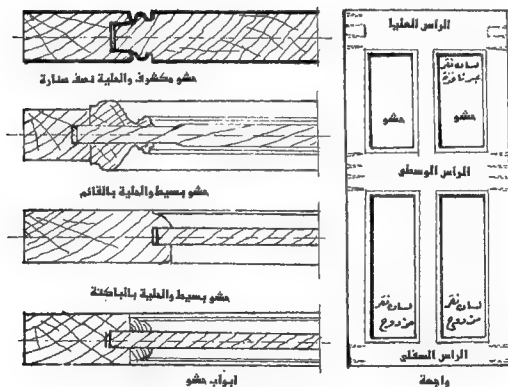 حشو مكشوف والحلية نصف ستارة
حشو بسيط والحلية بالقائم
حشو بسيط والحلية بالباكتة
ابواب حشو
الراس العليا
لسان نقر
حشو
حشو
الراس الوسطى
لسان نقر
مزدوج
لسان نقر
مزدوج
الراس السفلي
واجهة